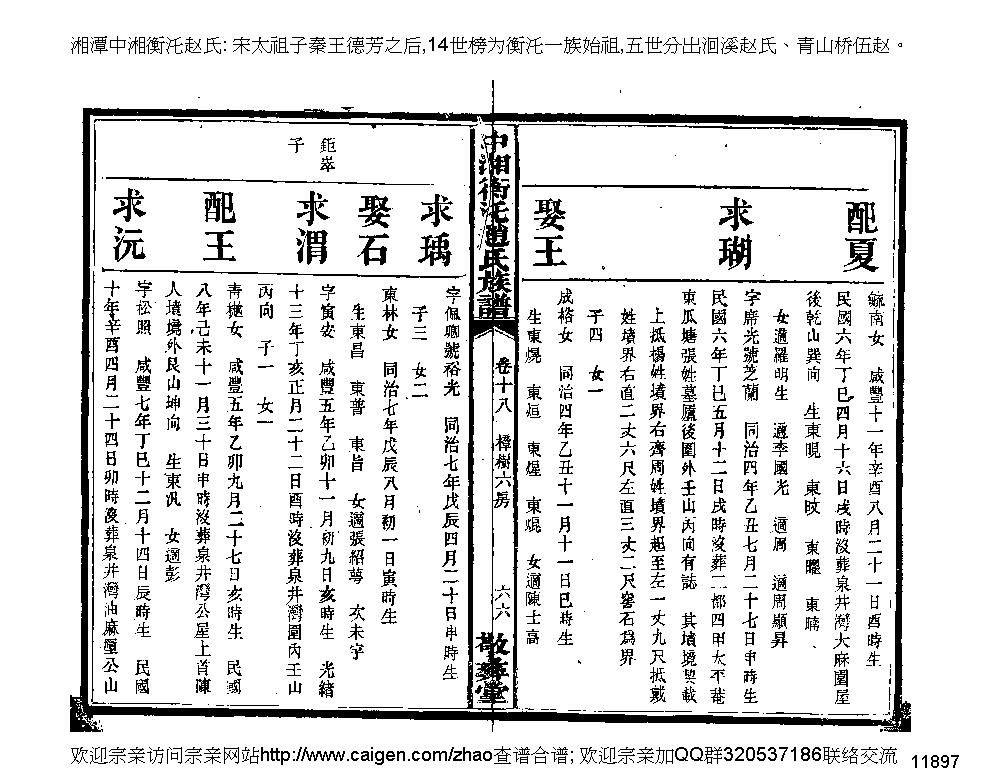 湘潭中湘衡沱赵氏: 宋太祖子秦王德芳之后,14世榜为衡沱一族始祖,五世分出洄溪赵氏、青山桥伍赵。
配夏
毓南女 咸豐十一年辛酉八月二十一日酉時生
民國六年丁巳四月十六日戌時沒葬泉井灣大麻園屋
後乾山巽向 生東晛 東旼 東曜 東暔
女適羅明生 適李國光 適周 適周顯昇
求瑚
字席光號芝蘭 同治四年乙丑七月二十七日申時生
民國六年丁巳五月十二日戌時沒葬二都四甲太平菴
東瓜塘張姓墓廬後圍外壬山丙向有誌 其墳境契載
上抵楊姓墳界右齊周姓墳界起至左一丈九尺抵戴
姓墳界右直二丈六尺左直三丈二尺窖石為界
子四 女一
娶王
成榕女 同治四年乙丑十一月十一日巳時生
生東焜 東烜 東煋 東焜 女適陳士高
中湘衡沱趙氏族譜
卷十八 樟樹六房
六六
敬彝堂
求瑀
字佩卿號裕光 同治七年戊辰四月二十日申時生
子三 女二
娶石
東林女 同治七年戊辰八月初一日寅時生
生東昌 東普 東旨 女適張紹萼 次未字
鉅崒
子
求渭
字寅安 咸豐五年乙卯十一月初九日亥時生 光緒
十三年丁亥正月二十二日酉時沒葬泉井灣圍內壬山
丙向 子一 女一
配王
青極女 咸豐五年乙卯九月二十七日亥時生 民國
八年己未十一月三十日申時沒葬泉井灣公屋上首陳
人墳境外艮山坤向 生東汎 女適彭
求沅
字松照 咸豐七年丁巳十二月十四日辰時生 民國
十年辛酉四月二十四日卯時沒葬泉井灣油麻壟公山
欢迎宗亲访问宗亲网站http://www.caigen.com/zhao查谱合谱; 欢迎宗亲加QQ群320537186联络交流
11897